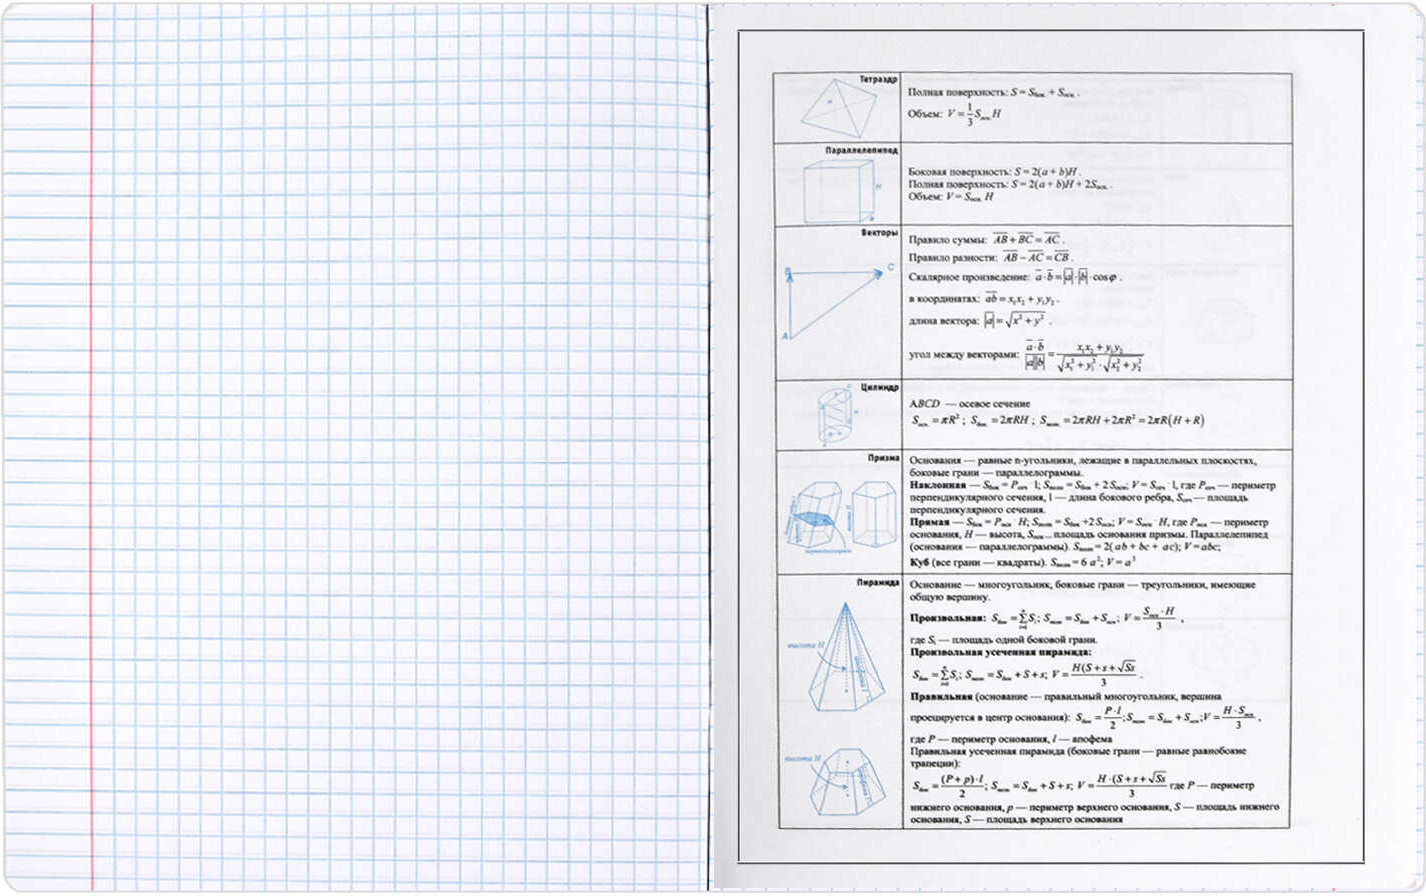 Тетраэдр
H
Полная поверхность: S = Sбок. + Sосн. .
Объем: V = 1/3 Sосн. H
Параллелепипед
H
Боковая поверхность: S = 2(a + b)H .
Полная поверхность: S = 2(a + b)H + 2Sосн. .
Объем: V = Sосн. H
Векторы
B
C
A
Правило суммы: AB + BC = AC .
Правило разности: AB − AC = CB .
Скалярное произведение: a · b = |a| · |b| · cos φ .
в координатах: ab = x₁x₂ + y₁y₂ .
длина вектора: |a| = √(x² + y²) .
угол между векторами: a · b / |a||b| = (x₁x₂ + y₁y₂) / (√(x₁² + y₁²) · √(x₂² + y₂²))
Цилиндр
H
ABCD — осевое сечение
Sосн. = πR² ; Sбок. = 2πRH ; Sполн. = 2πRH + 2πR² = 2πR(H + R)
Призма
Основания — равные n-угольники, лежащие в параллельных плоскостях,
боковые грани — параллелограммы.
Наклонная — Sбок = Pсеч · l; Sполн = Sбок + 2Sосн; V = Sсеч · l, где Pсеч — периметр
перпендикулярного сечения, l — длина бокового ребра, Sсеч — площадь
перпендикулярного сечения.
Прямая — Sбок = Pосн · H; Sполн = Sбок +2Sосн; V = Sосн · H, где Pосн — периметр
основания, H — высота, Sосн — площадь основания призмы. Параллелепипед
(основания — параллелограммы). Sполн = 2(ab + bc + ac); V = abc;
Куб (все грани — квадраты). Sполн = 6 a²; V = a³
Пирамида
высота H
Основание — многоугольник, боковые грани — треугольники, имеющие
общую вершину.
Произвольная: Sбок = ∑Sᵢ; Sполн = Sбок + Sосн; V = Sосн · H / 3 ,
где Sᵢ — площадь одной боковой грани.
Произвольная усеченная пирамида:
Sбок = ∑Sᵢ; Sполн = Sбок + S + s; V = H(S + s + √Ss / 3 .
Правильная (основание — правильный многоугольник, вершина
проецируется в центр основания): Sбок = P · l / 2 ; Sполн = Sбок + Sосн ; V = H · Sосн / 3 ,
где P — периметр основания, l — апофема
высота H
Правильная усеченная пирамида (боковые грани — равные равнобокие
трапеции):
Sбок = (P + p) · l / 2 ; Sполн = Sбок + S + s; V = H · (S + s + √Ss / 3 где P — периметр
нижнего основания, p — периметр верхнего основания, S — площадь нижнего
основания, S — площадь верхнего основания